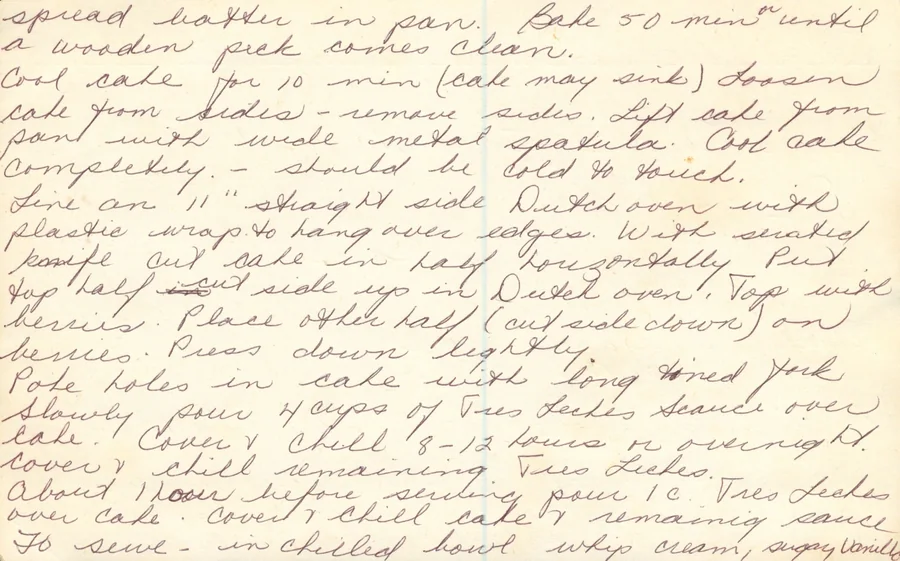 spread batter in pan. Bake 50 min or until
a wooden pick comes clean.
Cool cake for 10 min (cake may sink) Loosen
cake from sides - remove sides. Lift cake from
pan with wide metal spatula. Cool cake
completely. - should be cold to touch.
Line an 11" straight side Dutch oven with
plastic wrap to hang over edges. With serated
knife cut cake in half horizontally Put
top half cut side up in Dutch oven. Top with
berries. Place other half (cut side down) on
berries. Press down lightly
Poke holes in cake with long tined fork
Slowly pour 4 cups of Tres Leches Scauce over
cake. Cover & chill 8-12 hours or overnight.
Cover & chill remaining Tres Leches.
About 1 hour before serving pour 1 c. Tres Leches
over cake. Cover & chill cake & remainig sauce
To serve - in chilled bowl whip cream, sugar, Vanilla